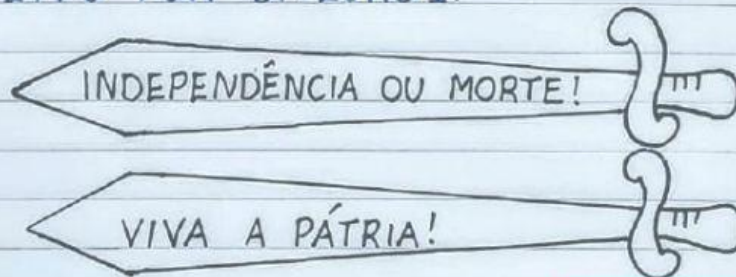 INDEPENDÊNCIA OU MORTE!
VIVA A PÁTRIA!